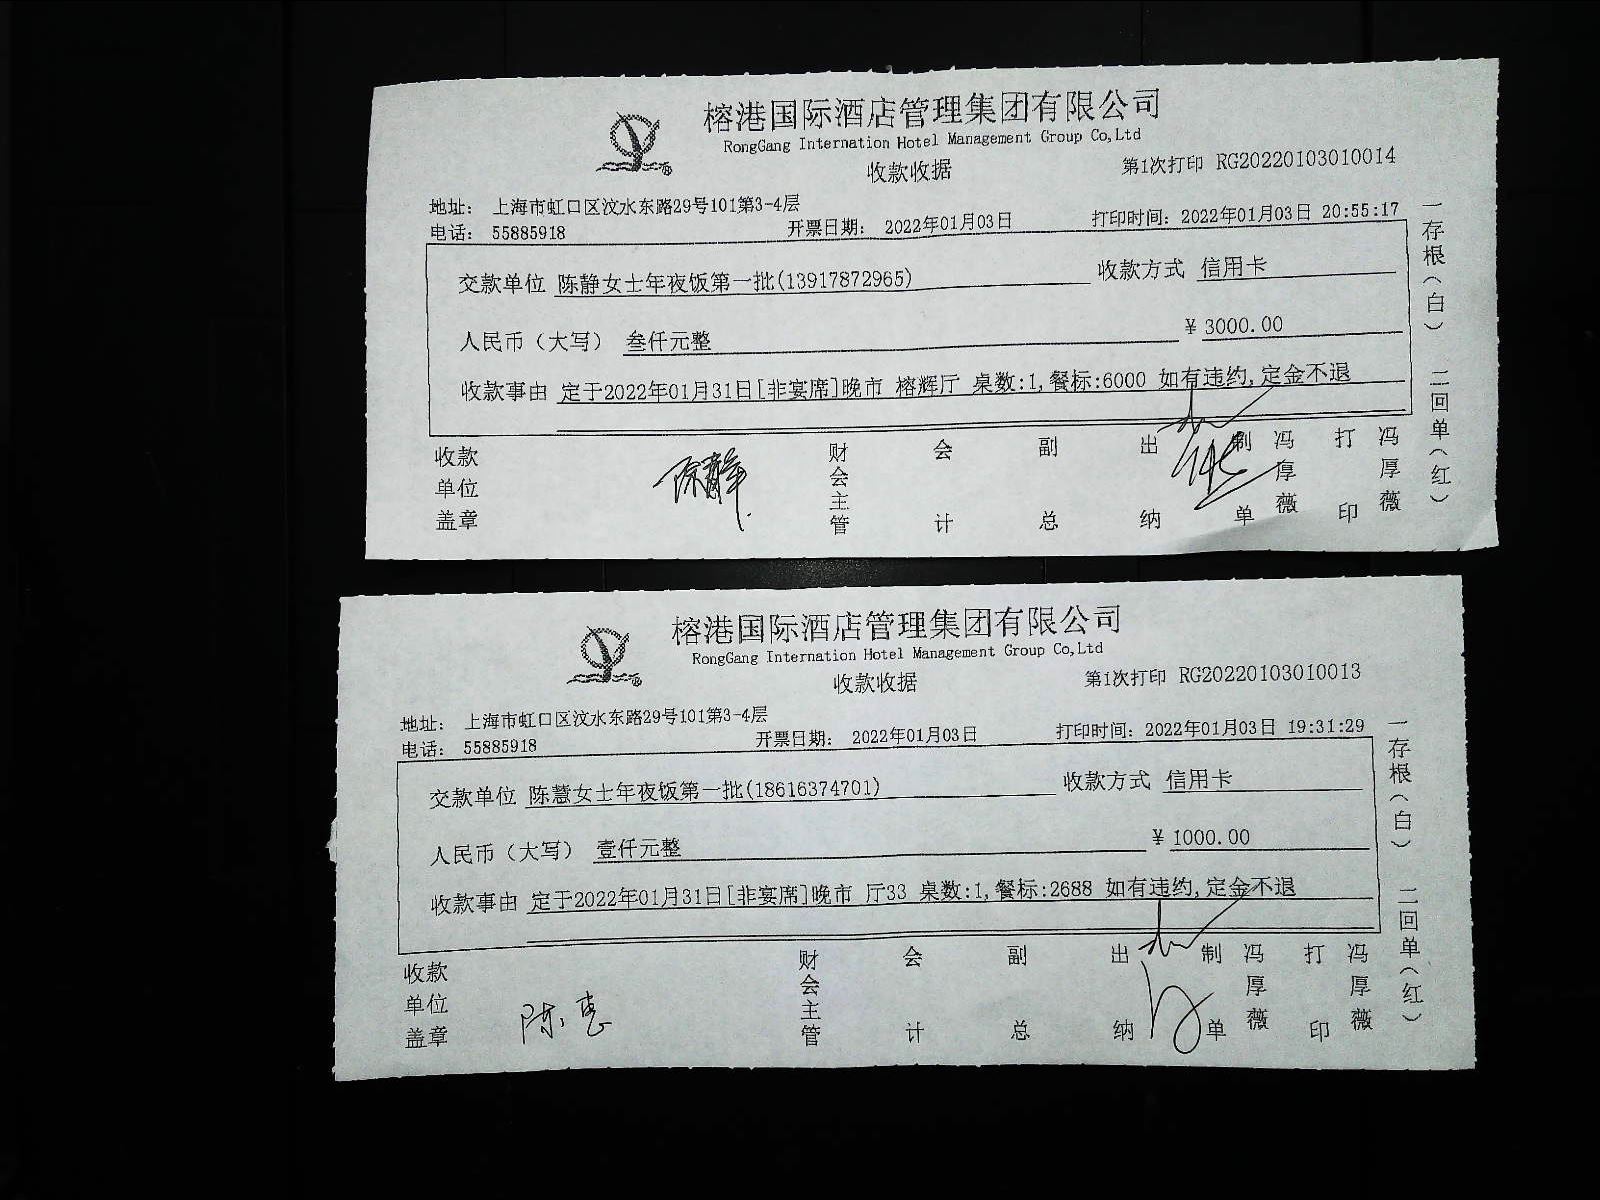 榕港国际酒店管理集团有限公司
RongGang Internation Hotel Management Group Co,Ltd
收款收据
第1次打印 RG20220103010014
地址： 上海市虹口区汶水东路29号101第3-4层
电话： 55885918 开票日期： 2022年01月03日 打印时间： 2022年01月03日 20:55:17
交款单位 陈静女士年夜饭第一批(13917872965) 收款方式 信用卡
人民币（大写） 叁仟元整 ￥ 3000.00
收款事由 定于2022年01月31日[非宴席]晚市 榕辉厅 桌数:1,餐标:6000 如有违约,定金不退
收款单位盖章 陈静 财会主管 会计 副总 出纳 制单 冯厚薇 打印 冯厚薇
一存根（白） 二回单（红）
榕港国际酒店管理集团有限公司
RongGang Internation Hotel Management Group Co,Ltd
收款收据
第1次打印 RG20220103010013
地址： 上海市虹口区汶水东路29号101第3-4层
电话： 55885918 开票日期： 2022年01月03日 打印时间： 2022年01月03日 19:31:29
交款单位 陈慧女士年夜饭第一批(18616374701) 收款方式 信用卡
人民币（大写） 壹仟元整 ￥ 1000.00
收款事由 定于2022年01月31日[非宴席]晚市 厅33 桌数:1,餐标:2688 如有违约,定金不退
收款单位盖章 陈惠 财会主管 会计 副总 出纳 制单 冯厚薇 打印 冯厚薇
一存根（白） 二回单（红）